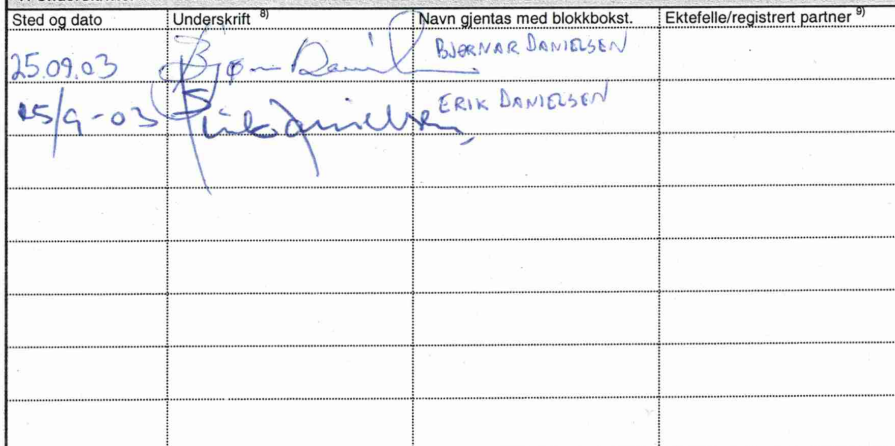 Sted og dato Underskrift 8) Navn gjentas med blokkbokst. Ektefelle/registrert partner 9)
25.09.03 BJØRNAR DANIELSEN
25/9-03 Erik Danielsen ERIK DANIELSEN